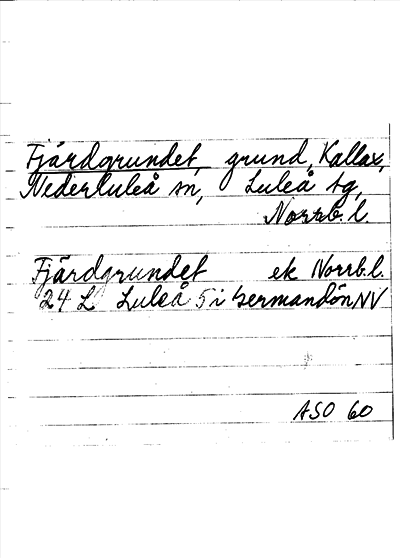 Fjärdgrundet, grund, Kallax,
Nederluleå sn, Luleå tg,
Norrb. l.
Fjärdgrundet ek Norrb. l.
24 L Luleå 5 i Germandön NV
ASO 60